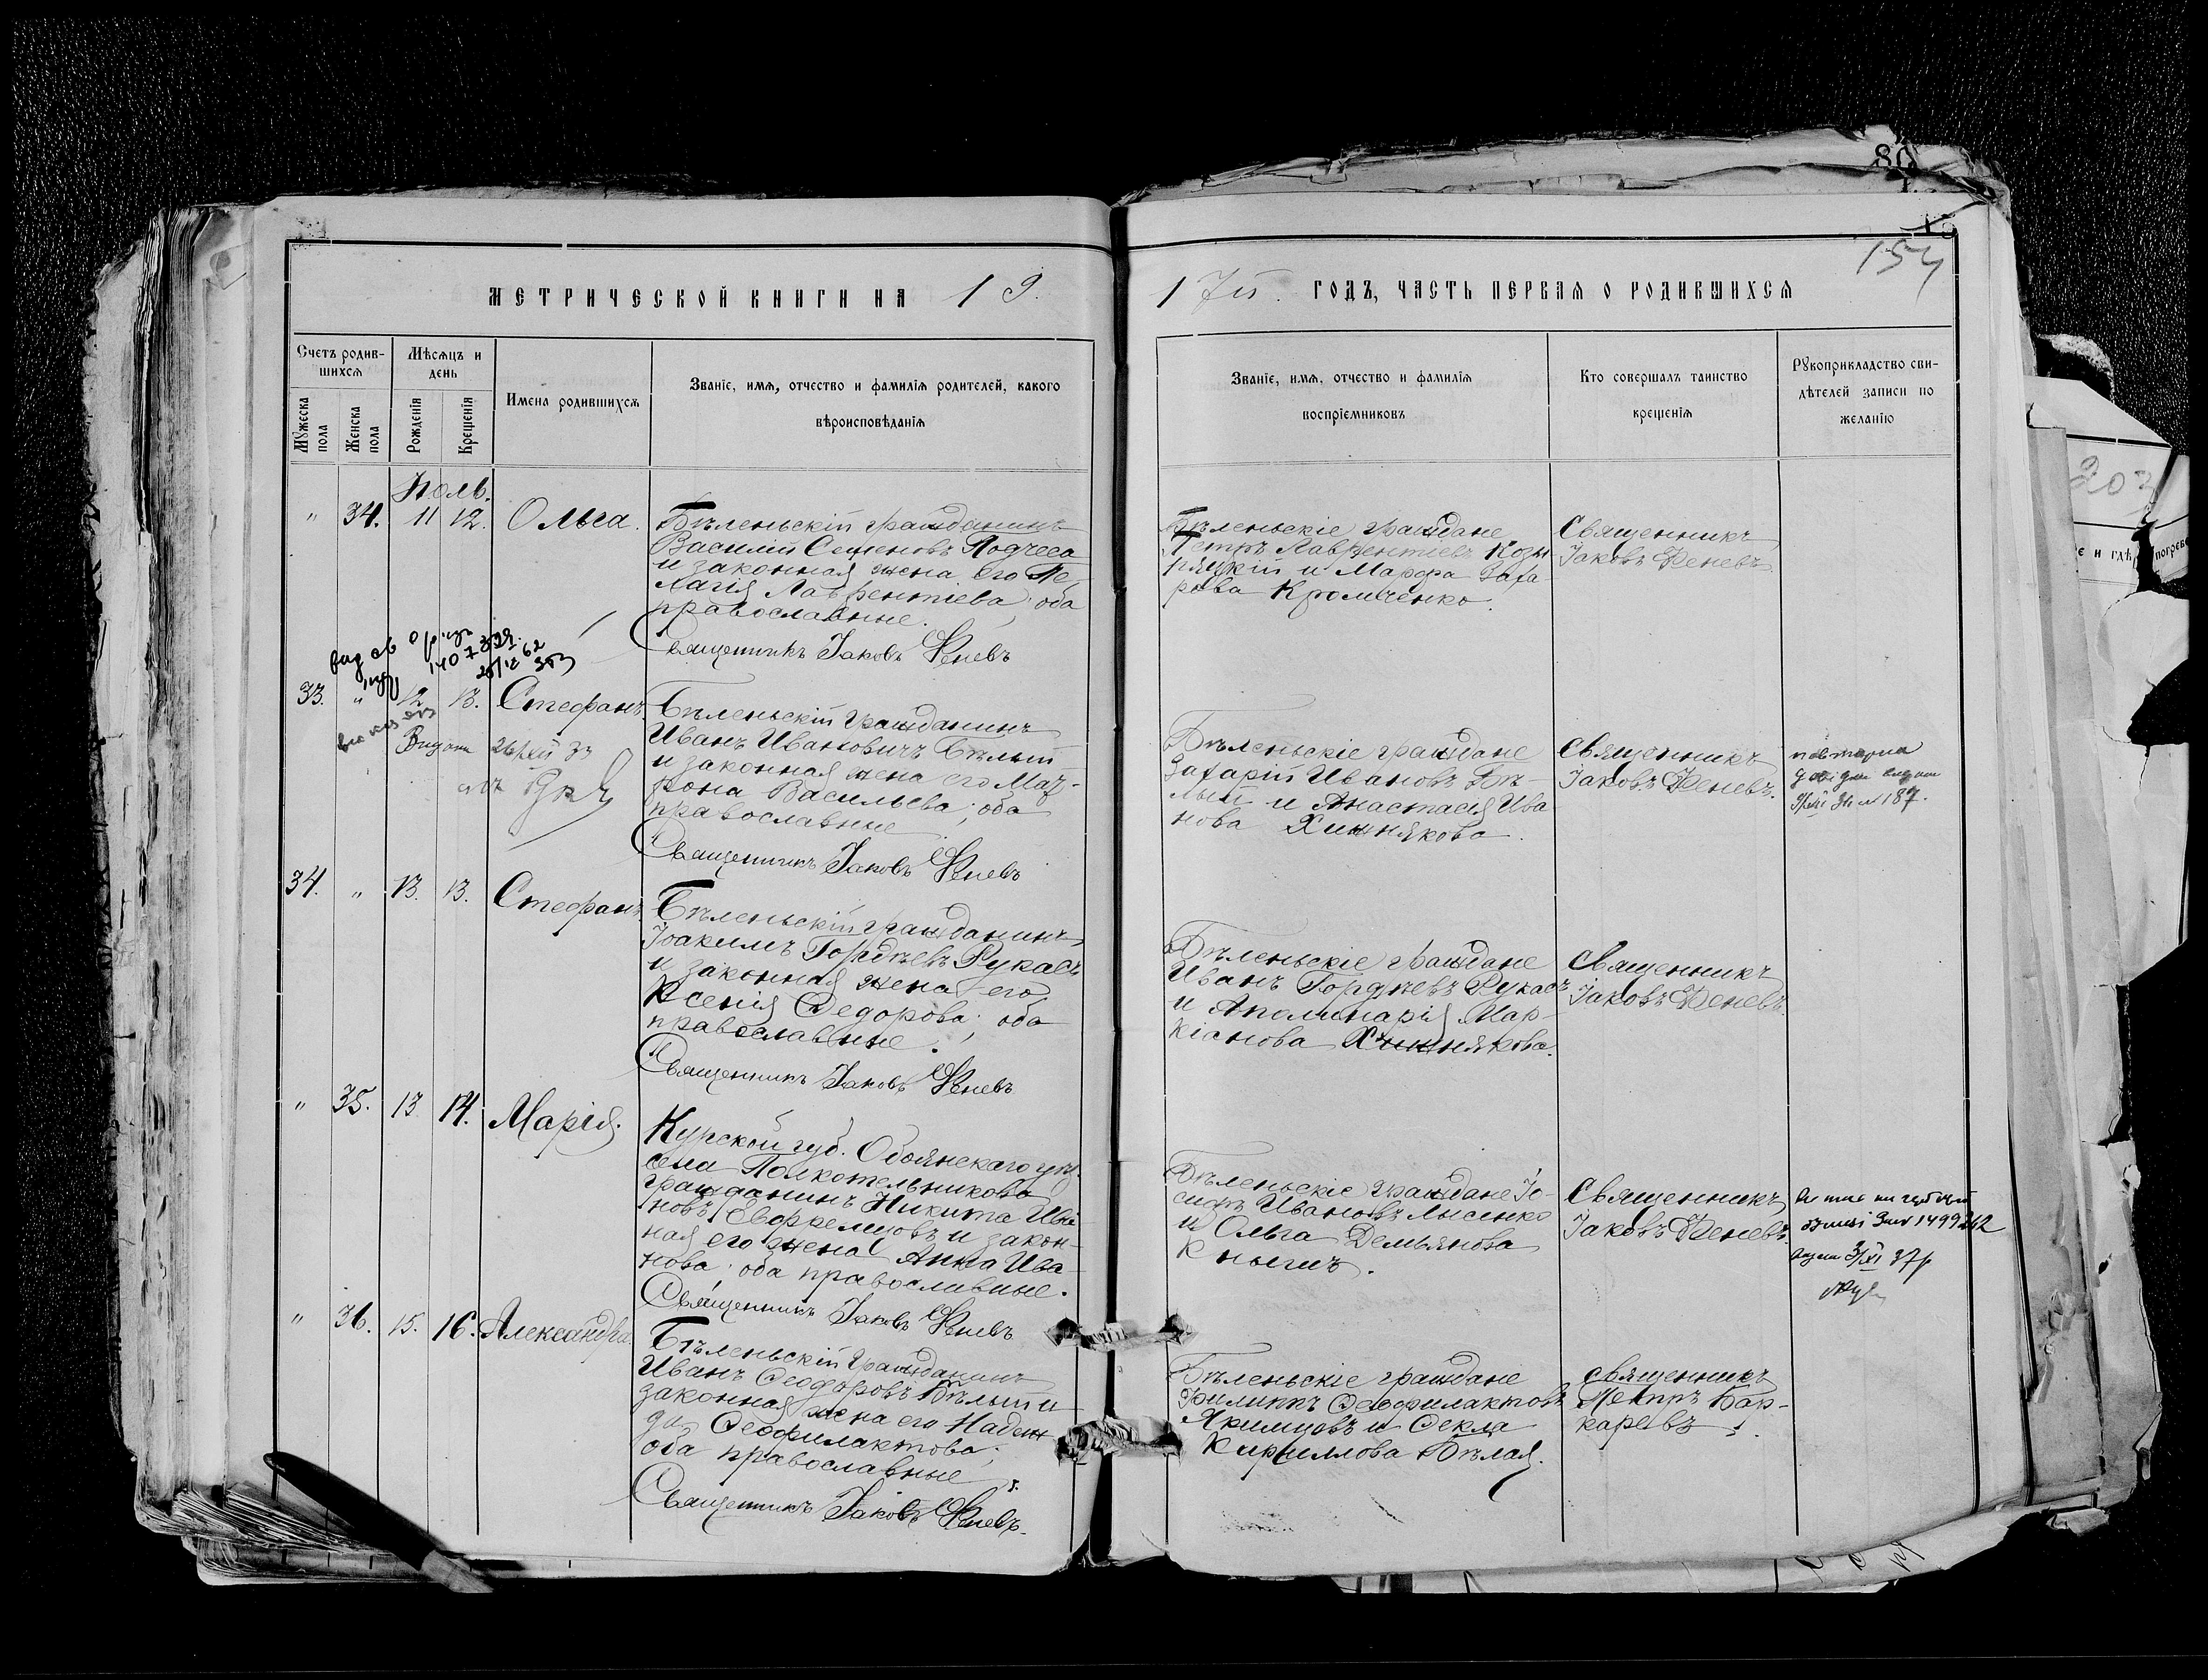 80
154
МЕТРИЧЕСКОЙ КНИГИ НА 19
17й. ГОДЪ, ЧАСТЬ ПЕРВАЯ О РОДИВШИХСЯ
Счетъ родив-
шихся
Мужеска пола
Женска пола
Мѣсяцъ и
день
Рожденія
Крещенія
Имена родившихся
Званіе, имя, отчество и фамилія родителей, какого
вѣроисповѣданія
Званіе, имя, отчество и фамилія
воспріемниковъ
Кто совершалъ таинство
крещенія
Рукоприкладство сви-
дѣтелей записи по
желанію
Іюль.
" 34. 11 12. Ольга.
Бѣленьскій гражданинъ
Василій Семеновъ Подчеса
и законная жена его Пе-
лагія Лаврентіева; оба
православные.
Священникъ Іаковъ Феневъ
Бѣленьскіе граждане
Петръ Лаврентіевъ Козы-
ряцкій и Марфа Заха-
рова Кромченко.
Священникъ
Іаковъ Феневъ
33. " 12 13. Стефанъ
Бѣленьскій гражданинъ
Иванъ Ивановичъ Бѣлый
и законная жена его Мат-
рона Васильева; оба
православные
Священникъ Іаковъ Феневъ
Бѣленьскіе граждане
Захарій Ивановъ Бѣ-
лый и Анастасія Ива
нова Хижнякова.
Священникъ
Іаковъ Феневъ.
187.
34. " 13. 13. Стефанъ
Бѣленьскій гражданинъ
Іоакимъ Гордѣевъ Рукасъ
и законная жена его
Ксенія Ѳедорова; оба
православные.
Священникъ Іаковъ Феневъ
Бѣленьскіе граждане
Иванъ Гордѣевъ Рукасъ
и Аполинарія Мар-
кіанова Хижнякова.
Священникъ
Іаковъ Феневъ
" 35. 13 14. Марія.
Курской губ. Обоянскаго уѣз.
села Полкотельникова
гражданинъ Никита Ива
новъ и закон-
ная его жена Анна Ива-
нова; оба православные.
Священникъ Іаковъ Феневъ
Бѣленьскіе граждане Іо-
сифъ Ивановъ Лысенко
и Ольга Демьянова
Кнышъ.
Священникъ
Іаковъ Феневъ
1499262
" 36. 15. 16. Александра
Бѣленьскій гражданинъ
Иванъ Ѳеодоровъ Бѣлый и
законная жена его Надеж
да Ѳеофилактова;
оба православные
Священникъ Іаковъ Феневъ.
Бѣленьскіе граждане
Филиппъ Ѳеофилактовъ
Якимцовъ и Ѳекла
Кириллова Бѣлая.
священникъ
Петръ Бан-
каревъ.
203